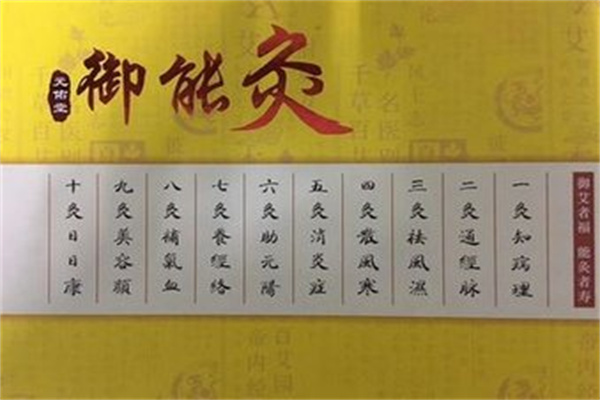 元佑堂
御能灸
御艾者福 能灸者寿
一灸知病理
二灸通經脉
三灸祛風濕
四灸散風寒
五灸消炎症
六灸助元陽
七灸養經络
八灸補氣血
九灸美容顏
十灸日日康